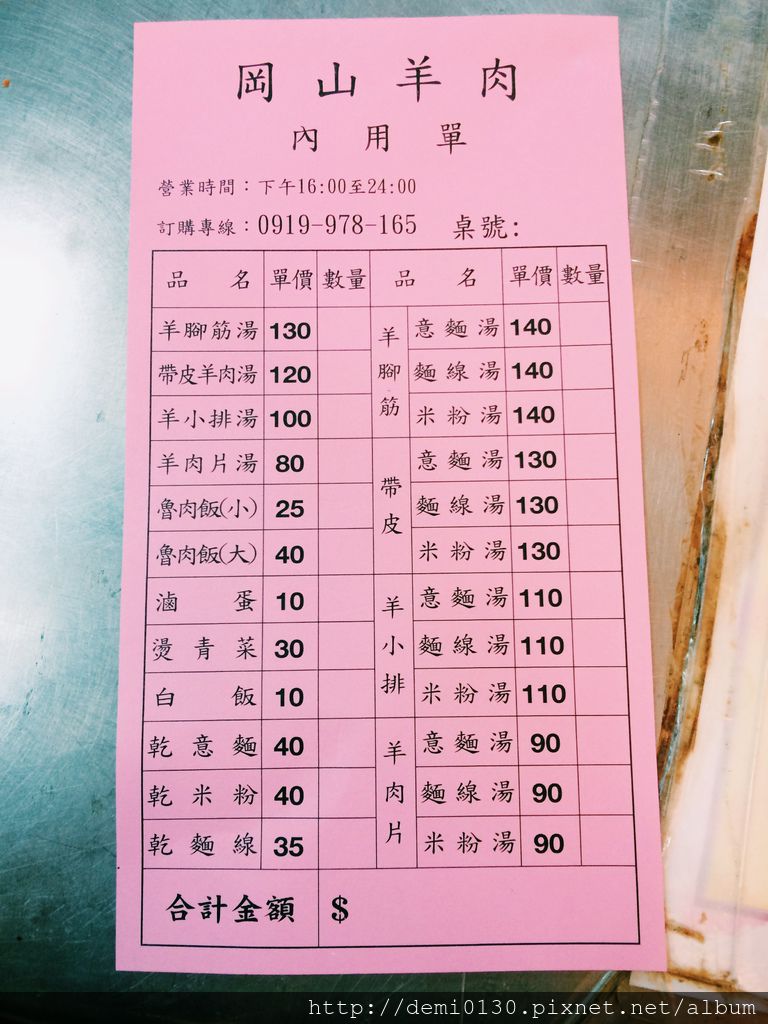 岡山羊肉
內用單
營業時間：下午16:00至24:00
訂購專線：0919-978-165 桌號:
品名 單價 數量 品名 單價 數量
羊腳筋湯 130 羊腳筋 意麵湯 140
帶皮羊肉湯 120 麵線湯 140
羊小排湯 100 米粉湯 140
羊肉片湯 80 帶皮 意麵湯 130
魯肉飯(小) 25 麵線湯 130
魯肉飯(大) 40 米粉湯 130
滷蛋 10 羊小排 意麵湯 110
燙青菜 30 麵線湯 110
白飯 10 米粉湯 110
乾意麵 40 羊肉片 意麵湯 90
乾米粉 40 麵線湯 90
乾麵線 35 米粉湯 90
合計金額 $
http://demi0130.pixnet.net/album